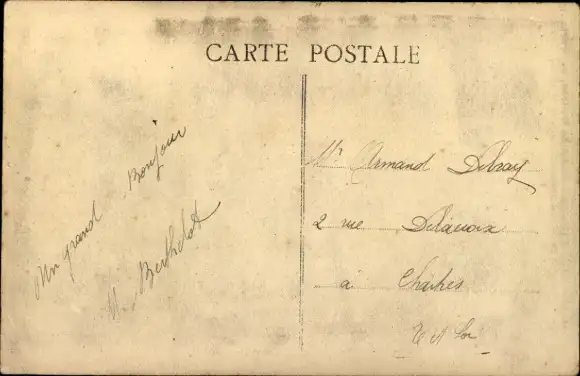 CARTE POSTALE
Un grand Bonjour
M. Berthelot
Mr Armand Debray
2 rue Delacroix
à Chartres
E et Loir